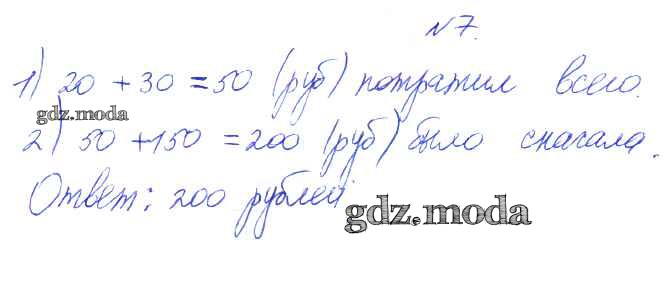 №7.
1) 20 + 30 = 50 (руб) потратил всего.
gdz.moda
2) 50 + 150 = 200 (руб) было сначала.
Ответ: 200 рублей
gdz.moda